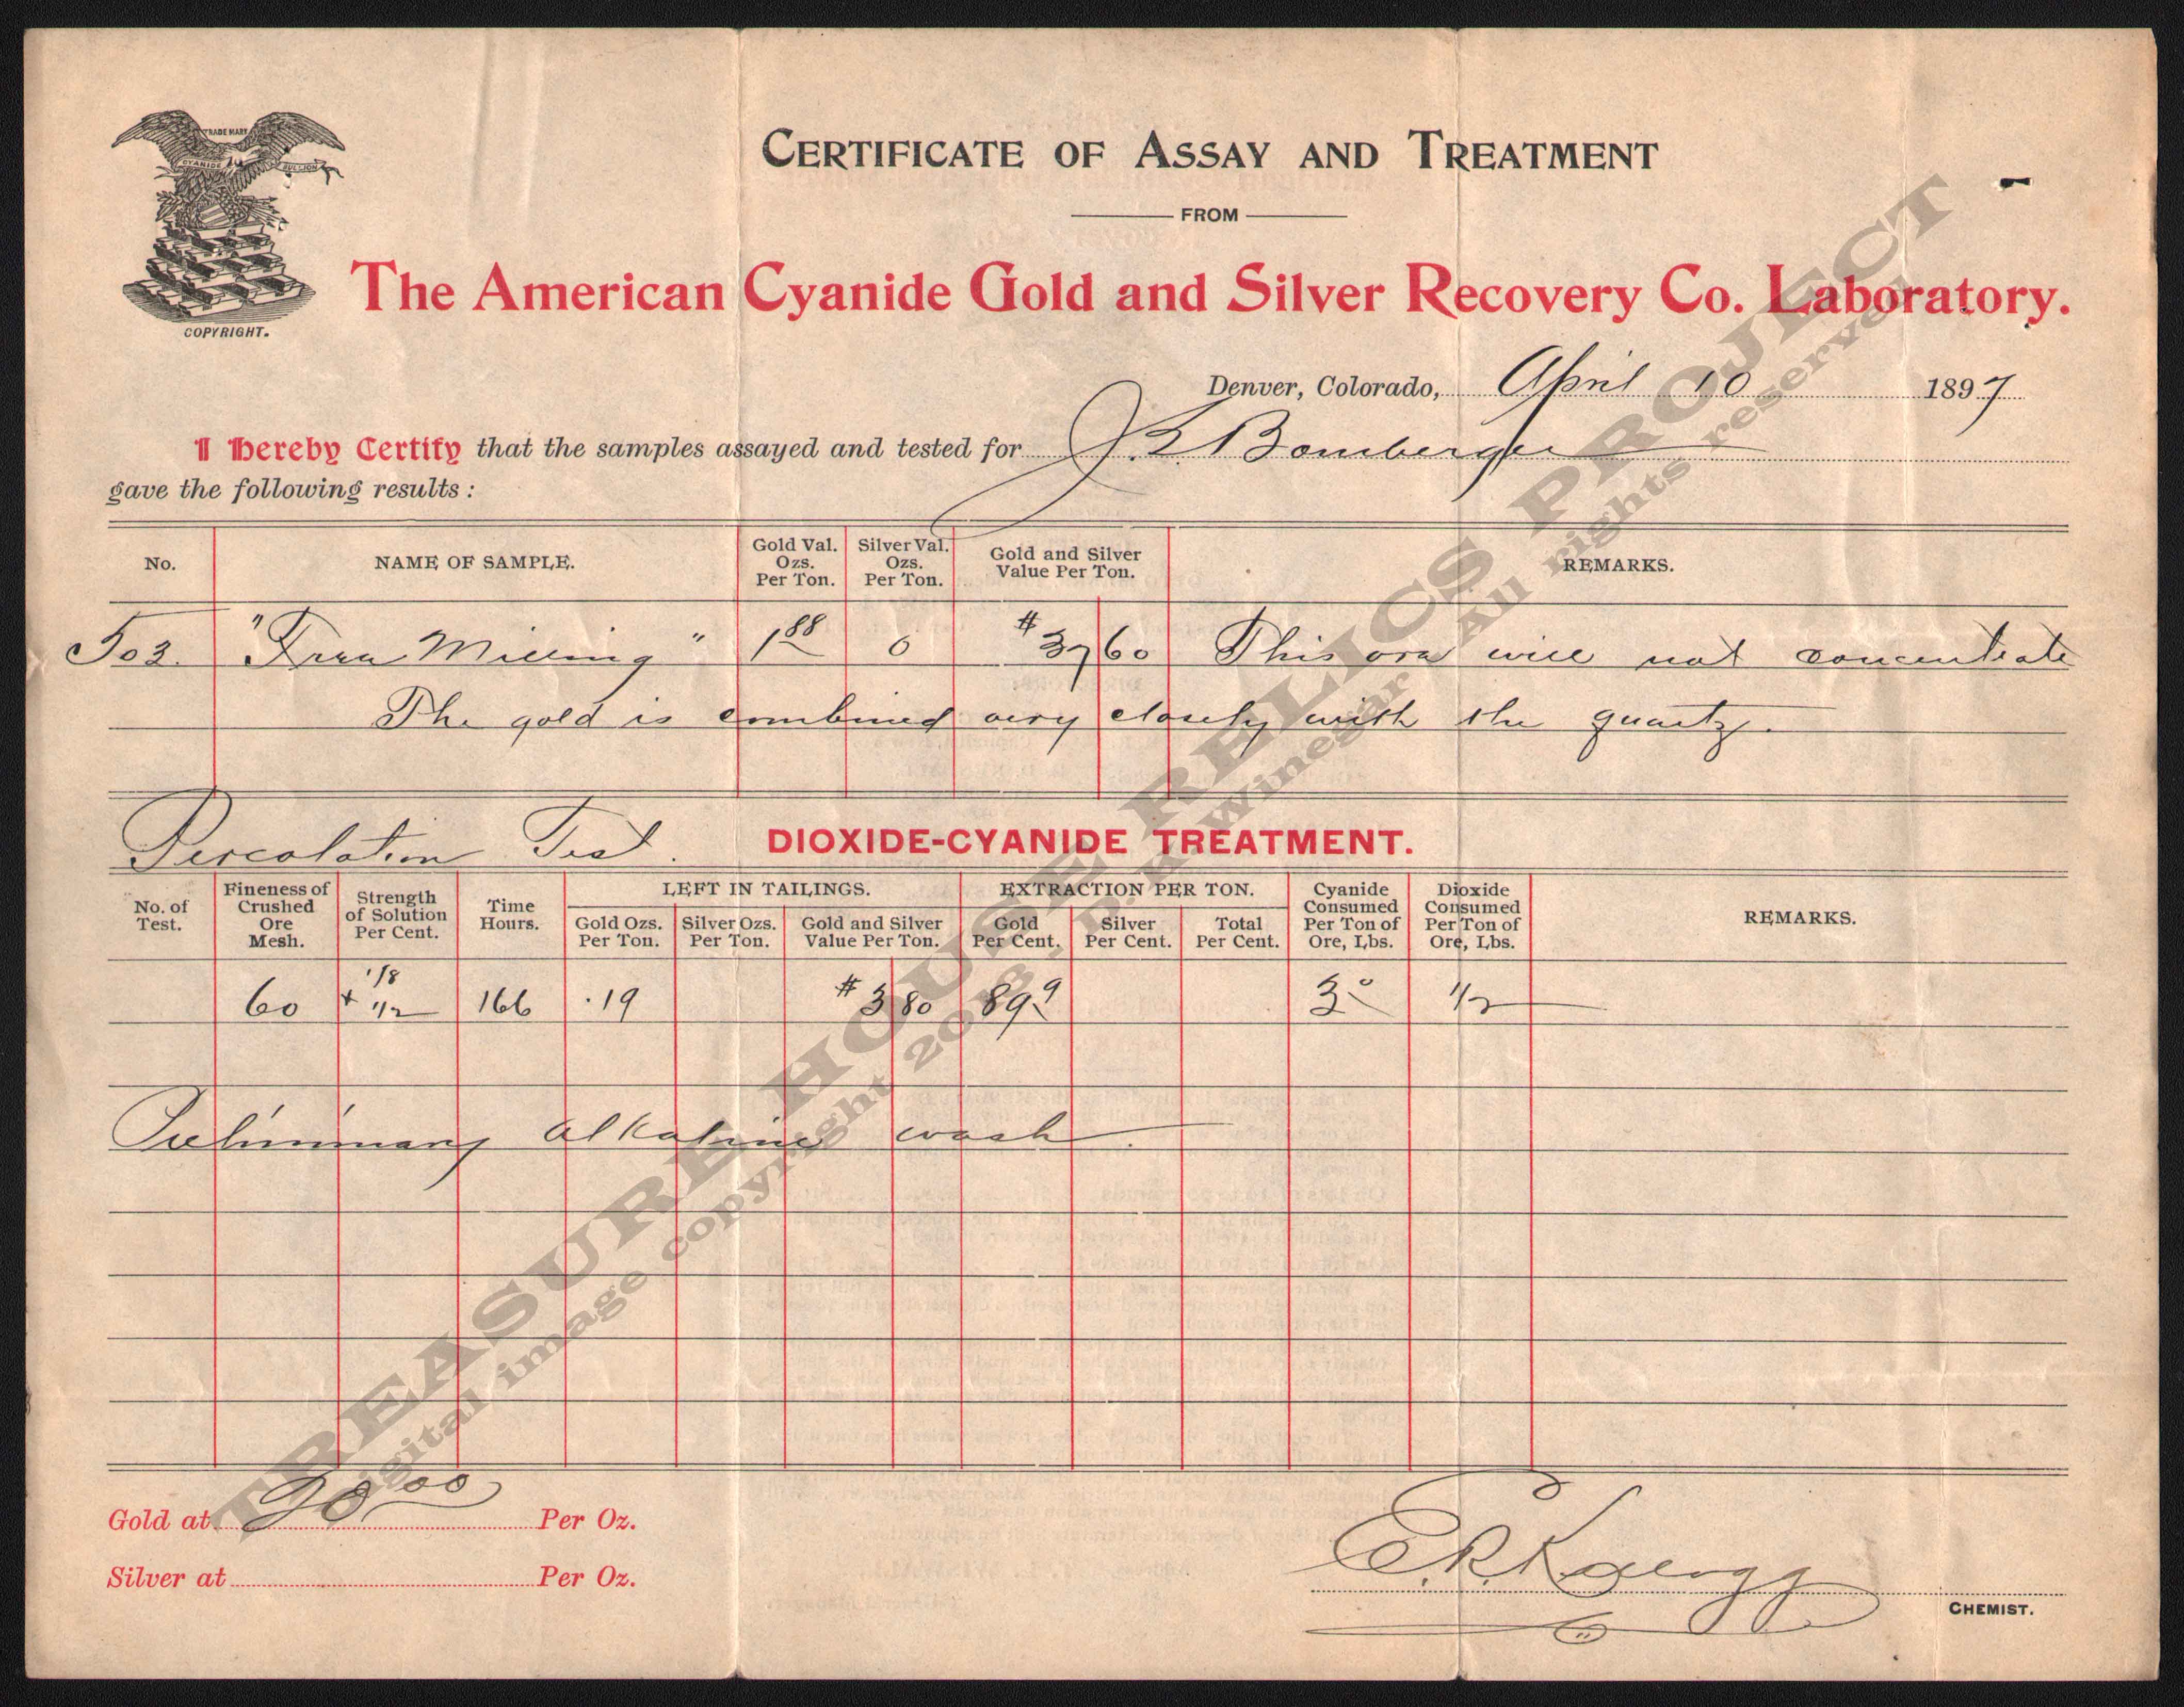 TRADE MARK
CYANIDE BULLION
COPYRIGHT.
CERTIFICATE OF ASSAY AND TREATMENT
FROM
The American Cyanide Gold and Silver Recovery Co. Laboratory.
Denver, Colorado, April 10 1897
I Hereby Certify that the samples assayed and tested for J. E. Bomberger
gave the following results :
No. NAME OF SAMPLE. Gold Val. Ozs. Per Ton. Silver Val. Ozs. Per Ton. Gold and Silver Value Per Ton. REMARKS.
503. "Free Milling" 1 88 0 $37 60 This ore will not concentrate
The gold is combined very closely with the quartz.
Percolation Test. DIOXIDE-CYANIDE TREATMENT.
No. of Test. Fineness of Crushed Ore Mesh. Strength of Solution Per Cent. Time Hours. LEFT IN TAILINGS. Gold Ozs. Per Ton. Silver Ozs. Per Ton. Gold and Silver Value Per Ton. EXTRACTION PER TON. Gold Per Cent. Silver Per Cent. Total Per Cent. Cyanide Consumed Per Ton of Ore, Lbs. Dioxide Consumed Per Ton of Ore, Lbs. REMARKS.
60 1/8 + 1/2 166 .19 $3 80 89 9 3 0 1/2
Preliminary alkaline wash.
Gold at 20 00 Per Oz.
Silver at Per Oz.
CHEMIST.
TREASURE HOUSE RELICS PROJECT
Digital image copyright 2018 - D. A. Winegar All rights reserved